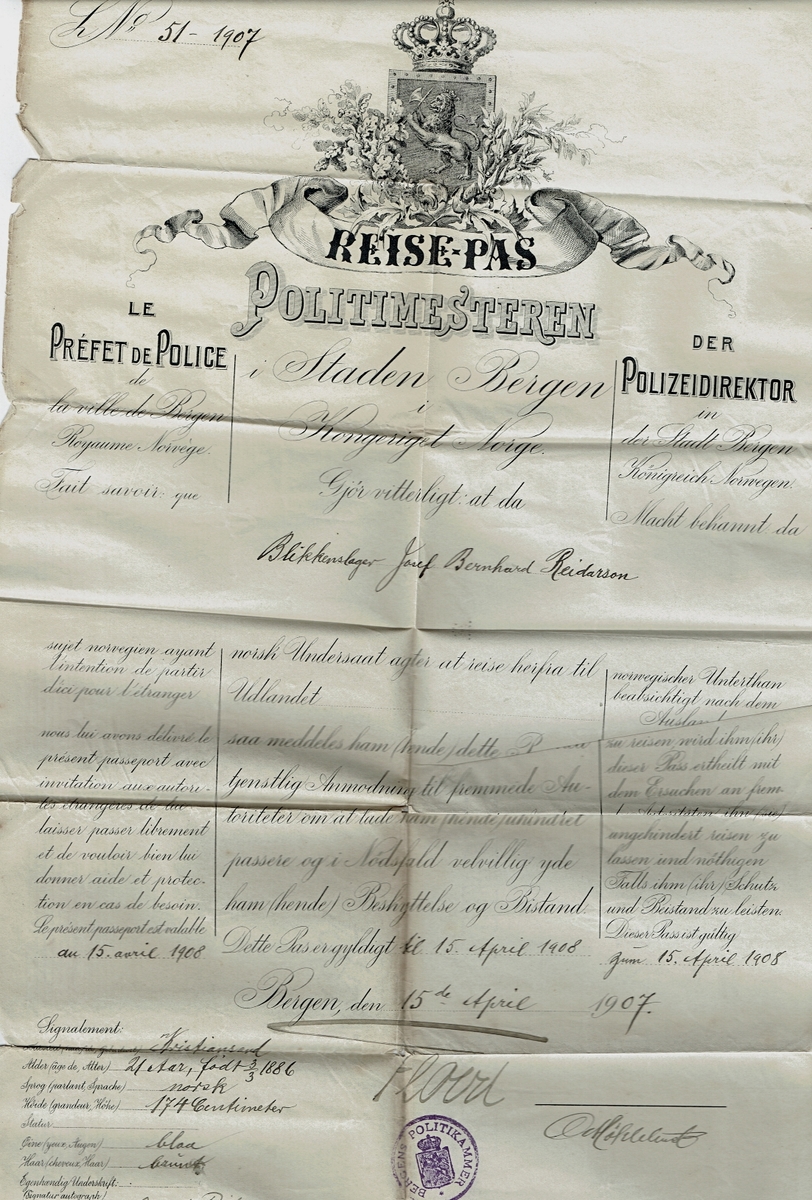 LNo 51-1907
REISE-PAS
POLITIMESTEREN
i Staden Bergen
i
Kongeriget Norge.
Gjör vitterligt: at da
LE
PRÉFET DE POLICE
de
la ville de Bergen
Royaume Norvège.
Fait savoir: que
DER
POLIZEIDIREKTOR
in
der Stadt Bergen
Königreich Norwegen.
Macht bekannt da
Blikkenslager Josef Bernhard Reidarson
sujet norvegien ayant
l'intention de partir
d'ici pour l'étranger
nous lui avons délivré le
présent passeport avec
invitation aux autori-
tés étrangères de lui
laisser passer librement
et de vouloir bien lui
donner aide et protec-
tion en cas de besoin.
Le présent passeport est valable
au 15. avril 1908
norsk Undersaat agter at reise herfra til
Udlandet
saa meddeles ham (hende) dette
tjenstlig Anmodning til fremmede Au-
toriteter om at lade ham (hende) uhindret
passere og i Nödsfald velvillig yde
ham (hende) Beskyttelse og Bistand.
Dette Pas er gyldigt til 15. April 1908
norwegischer Unterthan
beabsichtigt nach dem
Ausland
zu reisen, wird ihm (ihr)
dieser Pass ertheilt mit
dem Ersuchen an frem-
ihn (sie)
ungehindert reisen zu
lassen und nöthigen
Falls ihm (ihr) Schutz
und Beistand zu leisten.
Dieser Pass ist gültig
zum 15. April 1908
Bergen, den 15de April 1907.
Signalement:
Kristiansand
Alder (âge de, Alter) 21 Aar, født 3/3 1886
Sprog (parlant, Sprache) norsk
Höide (grandeur, Höhe) 174 Centimeter
Statur
Öine (yeux, Augen) blaa
Haar (cheveux, Haar) brunt
Egenhændig Underskrift:
(Signatur autograph)
BERGENS POLITIKAMMER